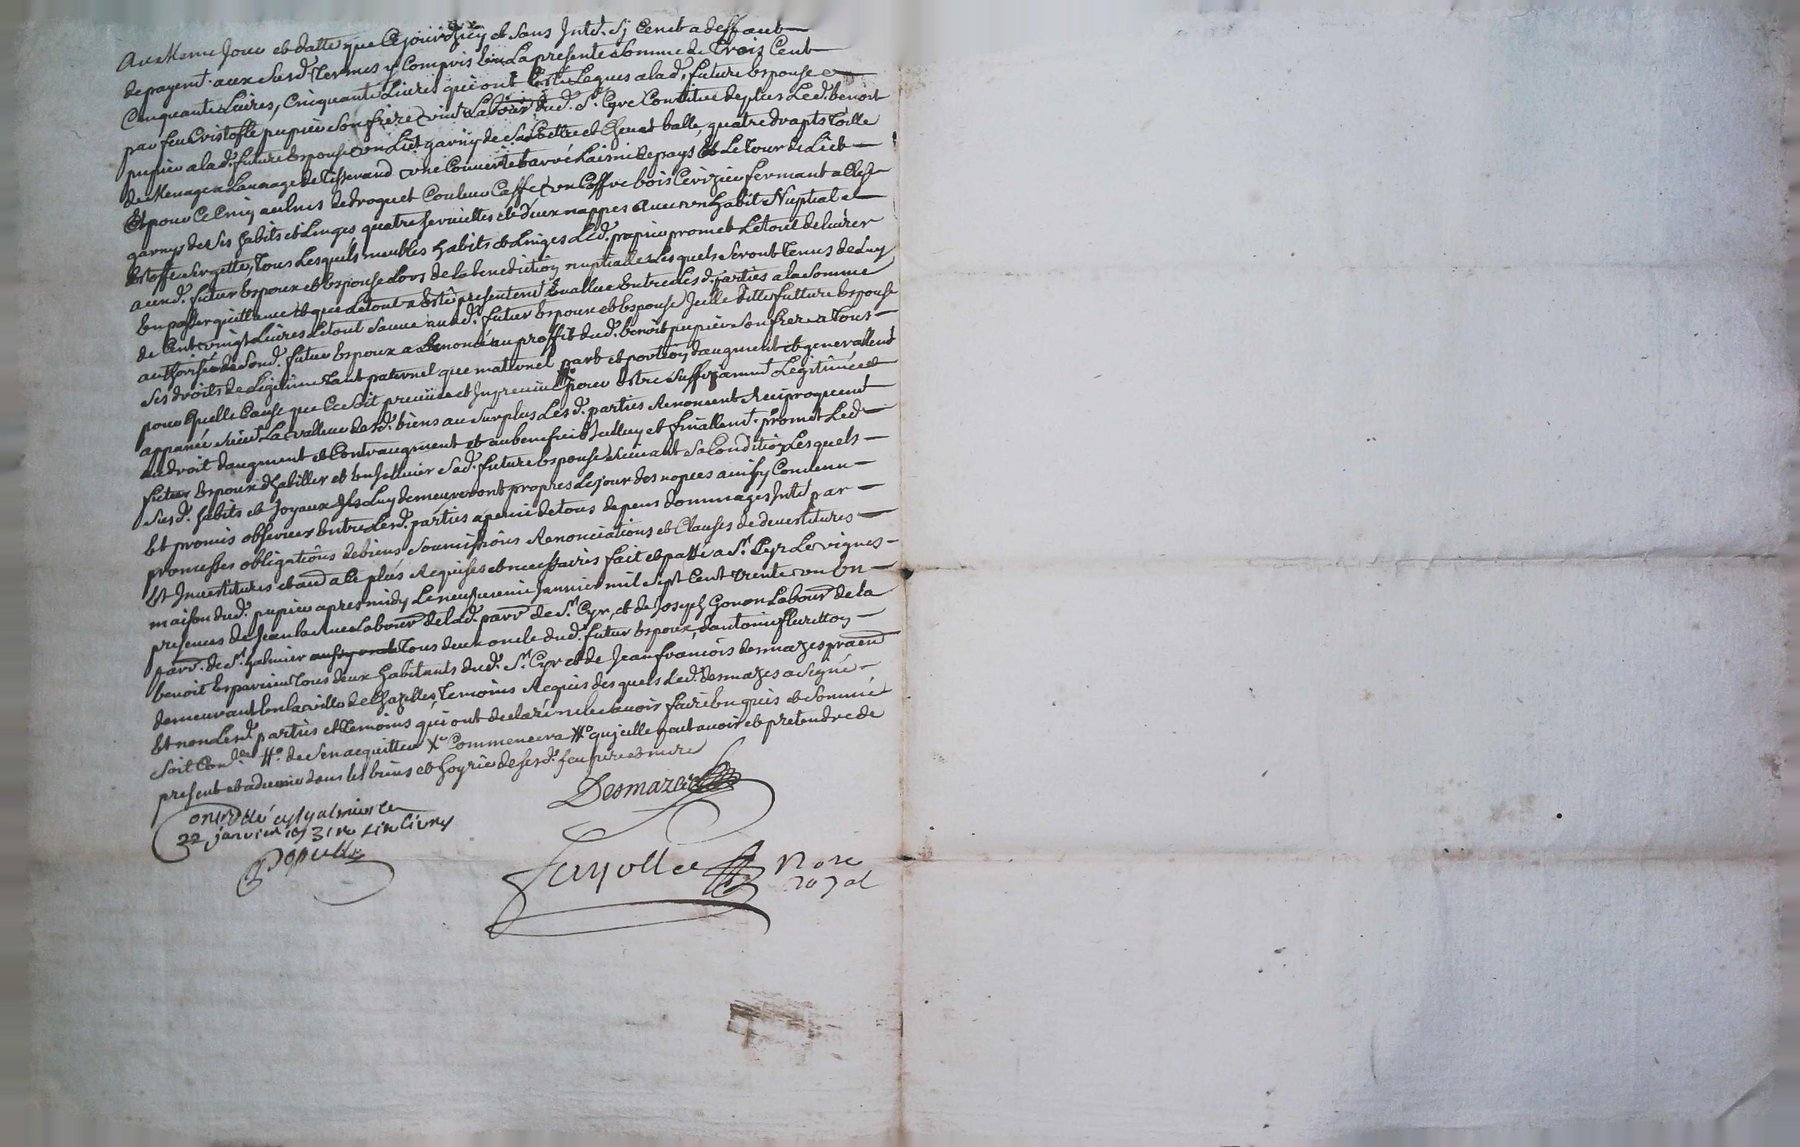 Au Meme Jour et datte que Cejourdhuy et sans Intd. Sj Cenet a deffaut
de payemt. aux susd. Termes y Compris La presente somme de Trois Cent
Cinquante Livres, Cinquante Livres qui ont Esté Legués a lad. future Espouse
par feu Cristofle pupier son frere Labour dud. St. Cyre Constitue de plus Led. benoit
pupier a lad. future Espouse un Lict garny de sa Coettre et balle quatre drapts Toille
de Menage a Laurage de Tisserand une Couverte Laine de pays Le Tour de Lict
Et pour Ce aulnes de droguet Couleur Caffe un Coffre bois Cerizier fermant a Clef
garny de ses habits et Linges quatre serviettes et deux nappes avec un habit Nuptial
Estoffe sergette, Tous Lesquels meubles habits et Linges Led. pupier promet Le tout delivrer
aux d. futur Espoux et Espouse Lors de la benediction nuptialle Lesquels seront Tenus de Luy
En passer quittance Et que Le tout a Esté presentemt. Evallué Entre Les d. parties a la somme
de Cent vingt Livres Le tout aud. futur Espoux et Espouse Jcelle ditte future Espouse
authorisée de sond. futur Espoux a Renoncé au proffit dud. benoit pupier son frere a Tous
ses droits de Legitime tant paternel que maternel part et portion daugment et generallemt
pour quelle Cause que Ce soit preuüe et Jnpreuüe pour Estre suffizammt Legitimée et
appanée suivt La valleur desd. biens au surplus Les d. parties Renoncent Reciproquemt
au droit daugment et Contraugment et au benefice dicelluy et finallemt. promet Led.
futur Espoux dhabiller et Enjoüaler sad. future Espouse suivant sa Condition Lesquels
susd. habits et Joyaux Luy demeureront propres Le jour des nopces ainsy Convenu
Et promis observer Entre Lesd. parties a peine de tous depens dommages Intd par
promesses obligations de biens soumissions Renonciations et Clauses de devestitures
Et Jnvestitures et au plus Requises et necessaires fait et passé a St. Cyr Les vignes
maison dud. pupier apres midy Le neufvieme Janvier mil sept Cent Trente un En
presences de Jean La Rue Labour de lad. parr. de St. Cyr, et de Joseph Gonon Labour de la
parr. de St. Galmier Tous deux oncle dud. futur Espoux, dantoine fleuritton
benoit Esparvier Tous deux habitants dud. St. Cyr et de Jean francois desmazes praend
demeurant En la ville de Chazelles, Temoins Requis desquels Led. desmazes a signé
Et non Lesd. parties et Temoins qui ont declaré ne le scavoir faire Enquis et sommé
soit Cond. de sen acquitter Commencera quj'elle peut avoir et pretendre de
present et advenir dans les biens et hoyrie de sesd. feu pere et mere
Desmazes
Controllé a St galmier le
22 janvier 1731 Livres
Fayolle No re
Royal